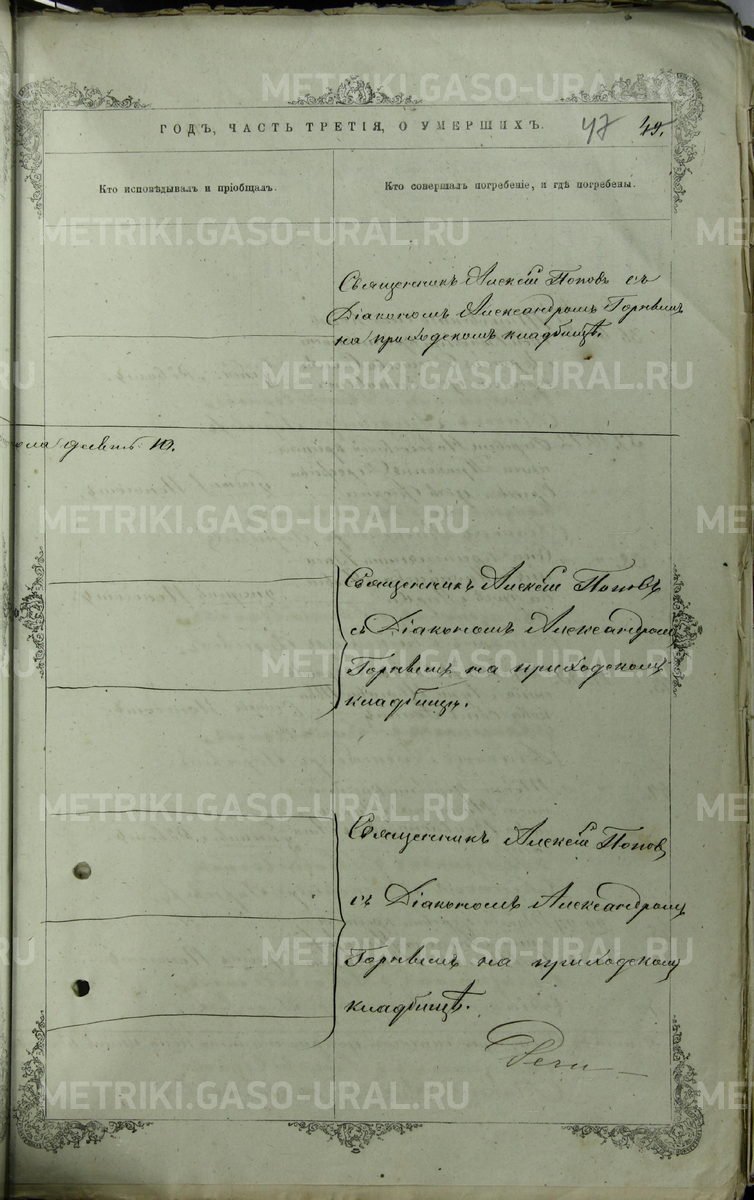 ГОДЪ, ЧАСТЬ ТРЕТІЯ, О УМЕРШИХЪ.
47
49.
Кто исповѣдывалъ и пріобщалъ.
Кто совершалъ погребеніе, и гдѣ погребены.
Священникъ Алексѣй Поповъ съ
Діакономъ Александромъ
на приходскомъ кладбищѣ.
девять 10.
Священникъ Алексѣй Поповъ
съ Діакономъ Александромъ
на приходскомъ
кладбищѣ.
Священникъ Алексѣй Поповъ
съ Діакономъ Александромъ
на приходскомъ
кладбищѣ.
METRIKI.GASO-URAL.RU